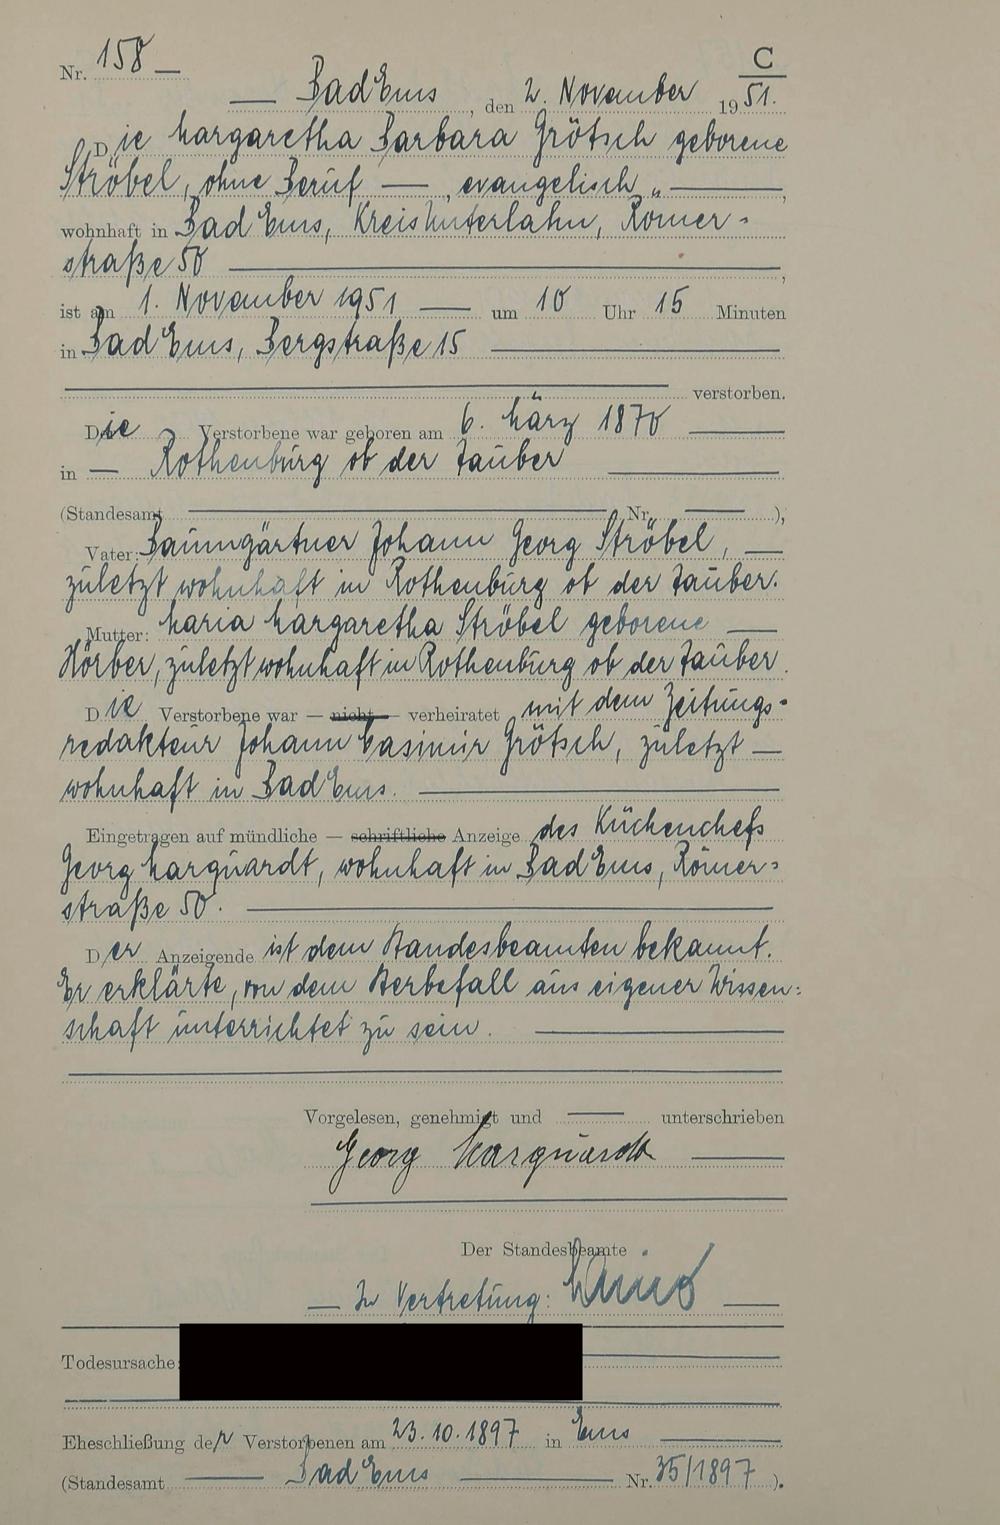 Nr. 158 —
C
— Bad Ems, den 2. November 1951.
Die Margaretha Barbara Grötsch geborene
Ströbel, ohne Beruf — , evangelisch „ — ,
wohnhaft in Bad Ems, Kreis Unterlahn, Römer-
straße 50 — ,
ist am 1. November 1951 — um 10 Uhr 15 Minuten
in Bad Ems, Bergstraße 15 —
— verstorben.
Die Verstorbene war geboren am 6. März 1870 —
in — Rothenburg ob der Tauber —
(Standesamt — Nr. — ),
Vater: Baumgärtner Johann Georg Ströbel, —
zuletzt wohnhaft in Rothenburg ob der Tauber.
Mutter: Maria Margaretha Ströbel geborene —
Hörber, zuletzt wohnhaft in Rothenburg ob der Tauber.
Die Verstorbene war — nicht — verheiratet mit dem Zeitungs-
redakteur Johann Casimir Grötsch, zuletzt —
wohnhaft in Bad Ems. —
Eingetragen auf mündliche — schriftliche Anzeige des Küchenchefs
Georg Marquardt, wohnhaft in Bad Ems, Römer-
straße 50. —
Der Anzeigende ist dem Standesbeamten bekannt.
Er erklärte, von dem Sterbefall aus eigener Wissen-
schaft unterrichtet zu sein. —
Vorgelesen, genehmigt und — unterschrieben
Georg Marquardt —
Der Standesbeamte
— In Vertretung: —
Todesursache:
Eheschließung der Verstorbenen am 23.10.1897 in Ems —
(Standesamt — Bad Ems — Nr. 35/1897 ).